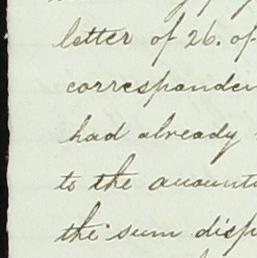 letter of 26. of
corresponden
had already
to the accounts
the sum disp